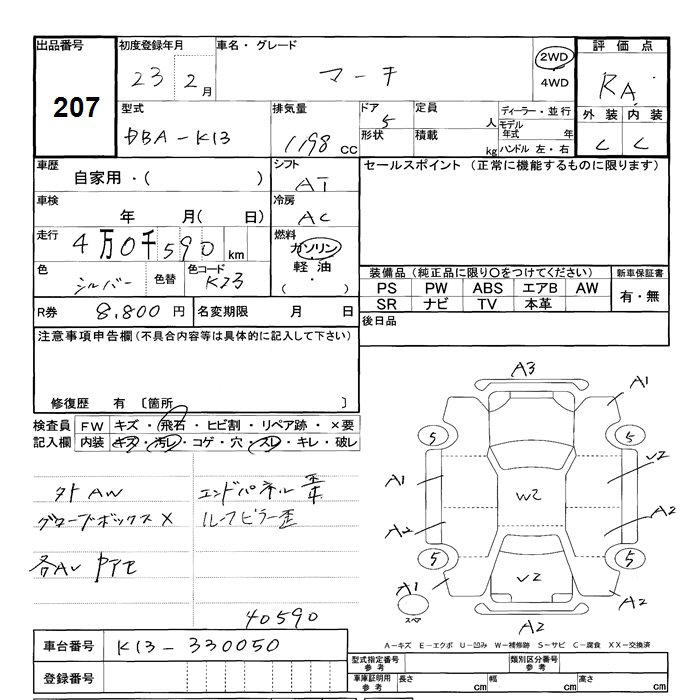 出品番号
207
初度登録年月
23 2月
車名・グレード
マーチ
2WD
4WD
評価点
RA
外装 内装
C C
型式
DBA-K13
排気量
1198 CC
ドア
5
形状
定員
人
積載
kg
ディーラー・並行
モデル年式 年
ハンドル 左・右
車歴
自家用・( )
シフト
AT
セールスポイント (正常に機能するものに限ります)
車検
年 月( 日)
冷房
AC
走行
4万0千590km
燃料
ガソリン
軽油
( ・ )
色
シルバー
色替
色コード
K23
装備品(純正品に限り〇をつけてください)
PS PW ABS エアB AW
SR ナビ TV 本革
新車保証書
有・無
R券 8,800円
名変期限 月 日
後日品
注意事項申告欄(不具合内容等は具体的に記入して下さい)
修復歴 有 〔箇所 〕
検査員記入欄
FW キズ・飛石・ヒビ割・リペア跡・×要
内装 キズ・汚レ・コゲ・穴・スレ・キレ・破レ
外AW
グローブボックス X
各AU
エンドパネル歪
ルーフピラー歪
40590
A3
A1
5
5
A1
U2
W2
A2
A2
5
5
U2
A1
A2
スペア
A2
A-キズ E-エクボ U-凹み W-補修跡 S-サビ C-腐食 XX-交換済
車台番号
K13-330050
登録番号
型式指定番号
参考
類別区分番号
参考
車庫証明用
参考
長さ cm
幅 cm
高さ cm